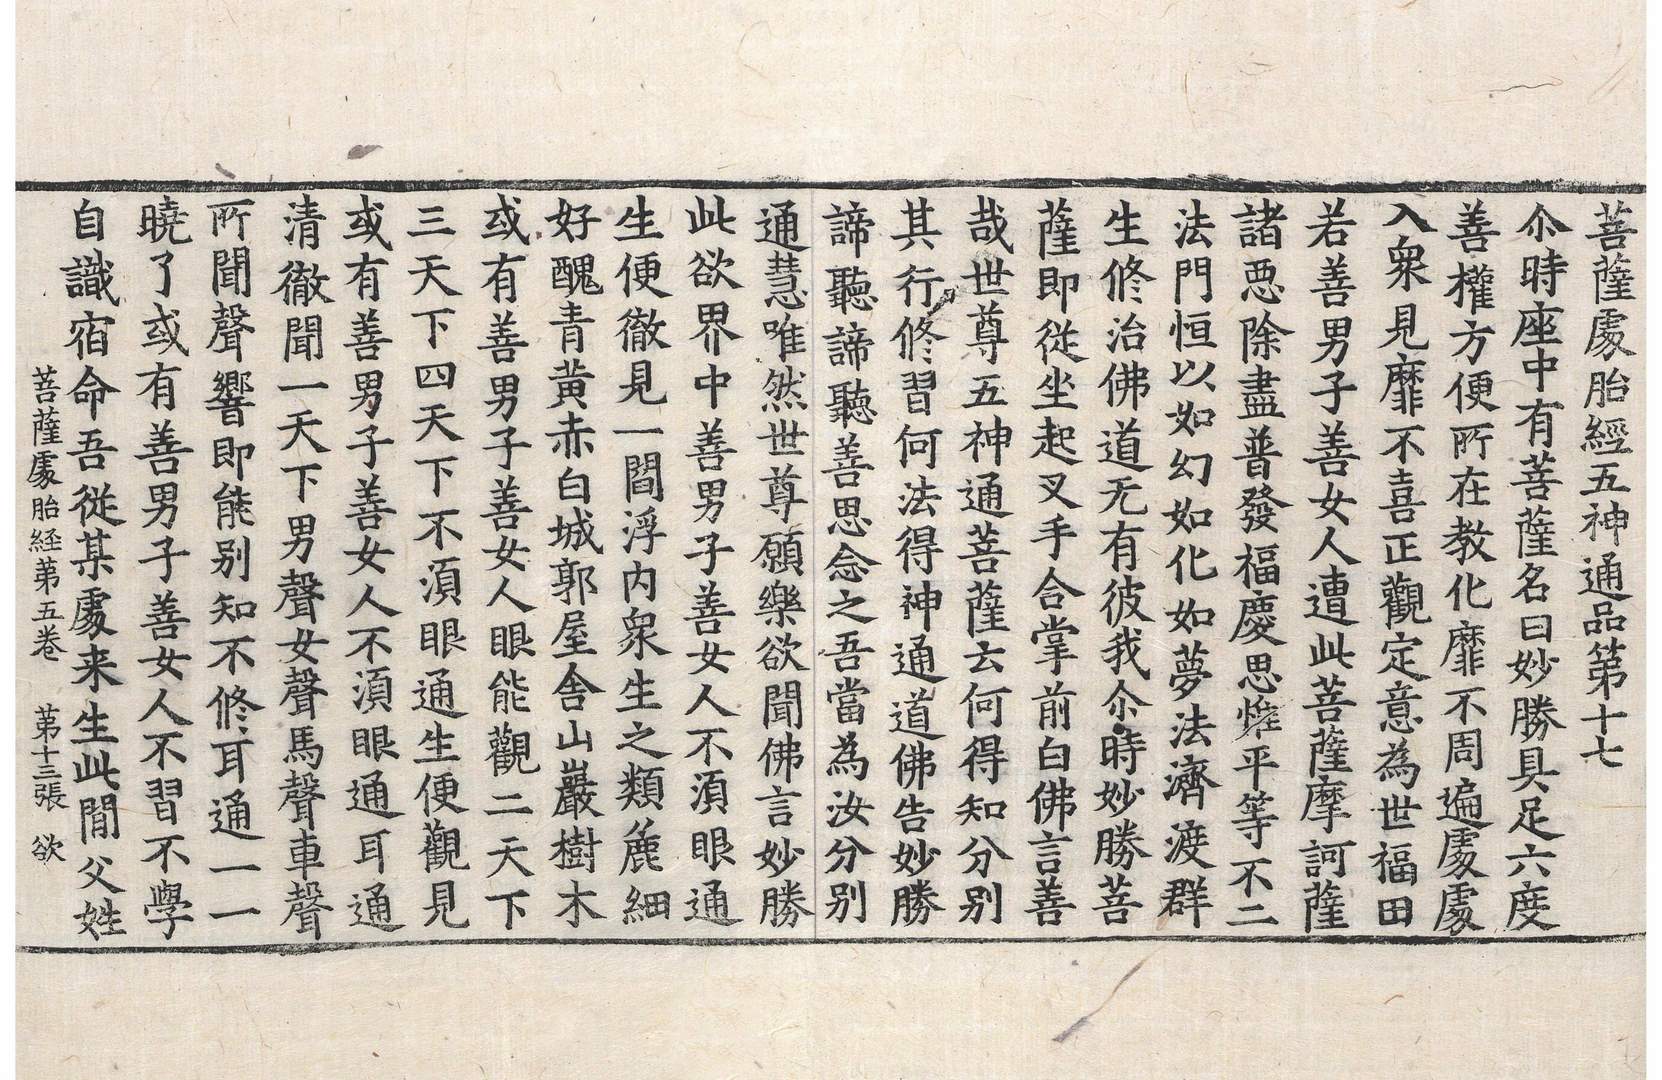 菩薩處胎經五神通品第十七
尒時座中有菩薩名曰妙勝具足六度
善權方便所在教化靡不周遍處處
入衆見靡不喜正觀定意為世福田
若善男子善女人遭此菩薩摩訶薩
諸惡除盡普發福慶思惟平等不二
法門恒以如幻如化如夢法濟渡群
生修治佛道无有彼我尒時妙勝菩
薩即從坐起叉手合掌前白佛言善
哉世尊五神通菩薩云何得知分别
其行修習何法得神通道佛告妙勝
諦聽諦聽善思念之吾當為汝分别
通慧唯然世尊願樂欲聞佛言妙勝
此欲界中善男子善女人不湏眼通
生便徹見一閻浮内衆生之類麁細
好醜青黃赤白城郭屋舍山巖樹木
或有善男子善女人眼能觀二天下
三天下四天下不湏眼通生便觀見
或有善男子善女人不湏眼通耳通
清徹聞一天下男聲女聲馬聲車聲
所聞聲響即能别知不修耳通一一
曉了或有善男子善女人不習不學
自識宿命吾從某處来生此間父姓
菩薩處胎経苐五巻　苐十三張　欲